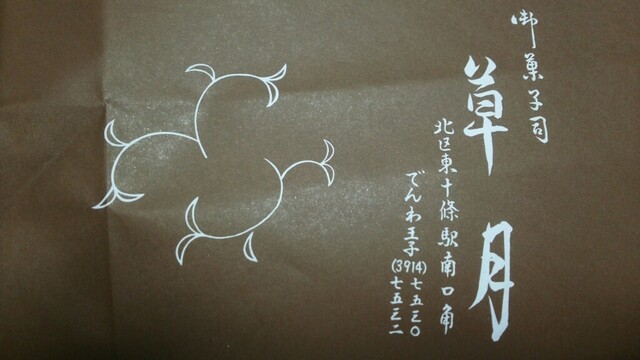 御菓子司
草月
北区東十條駅南口角
でんわ王子(3914)七五三〇
七五三二